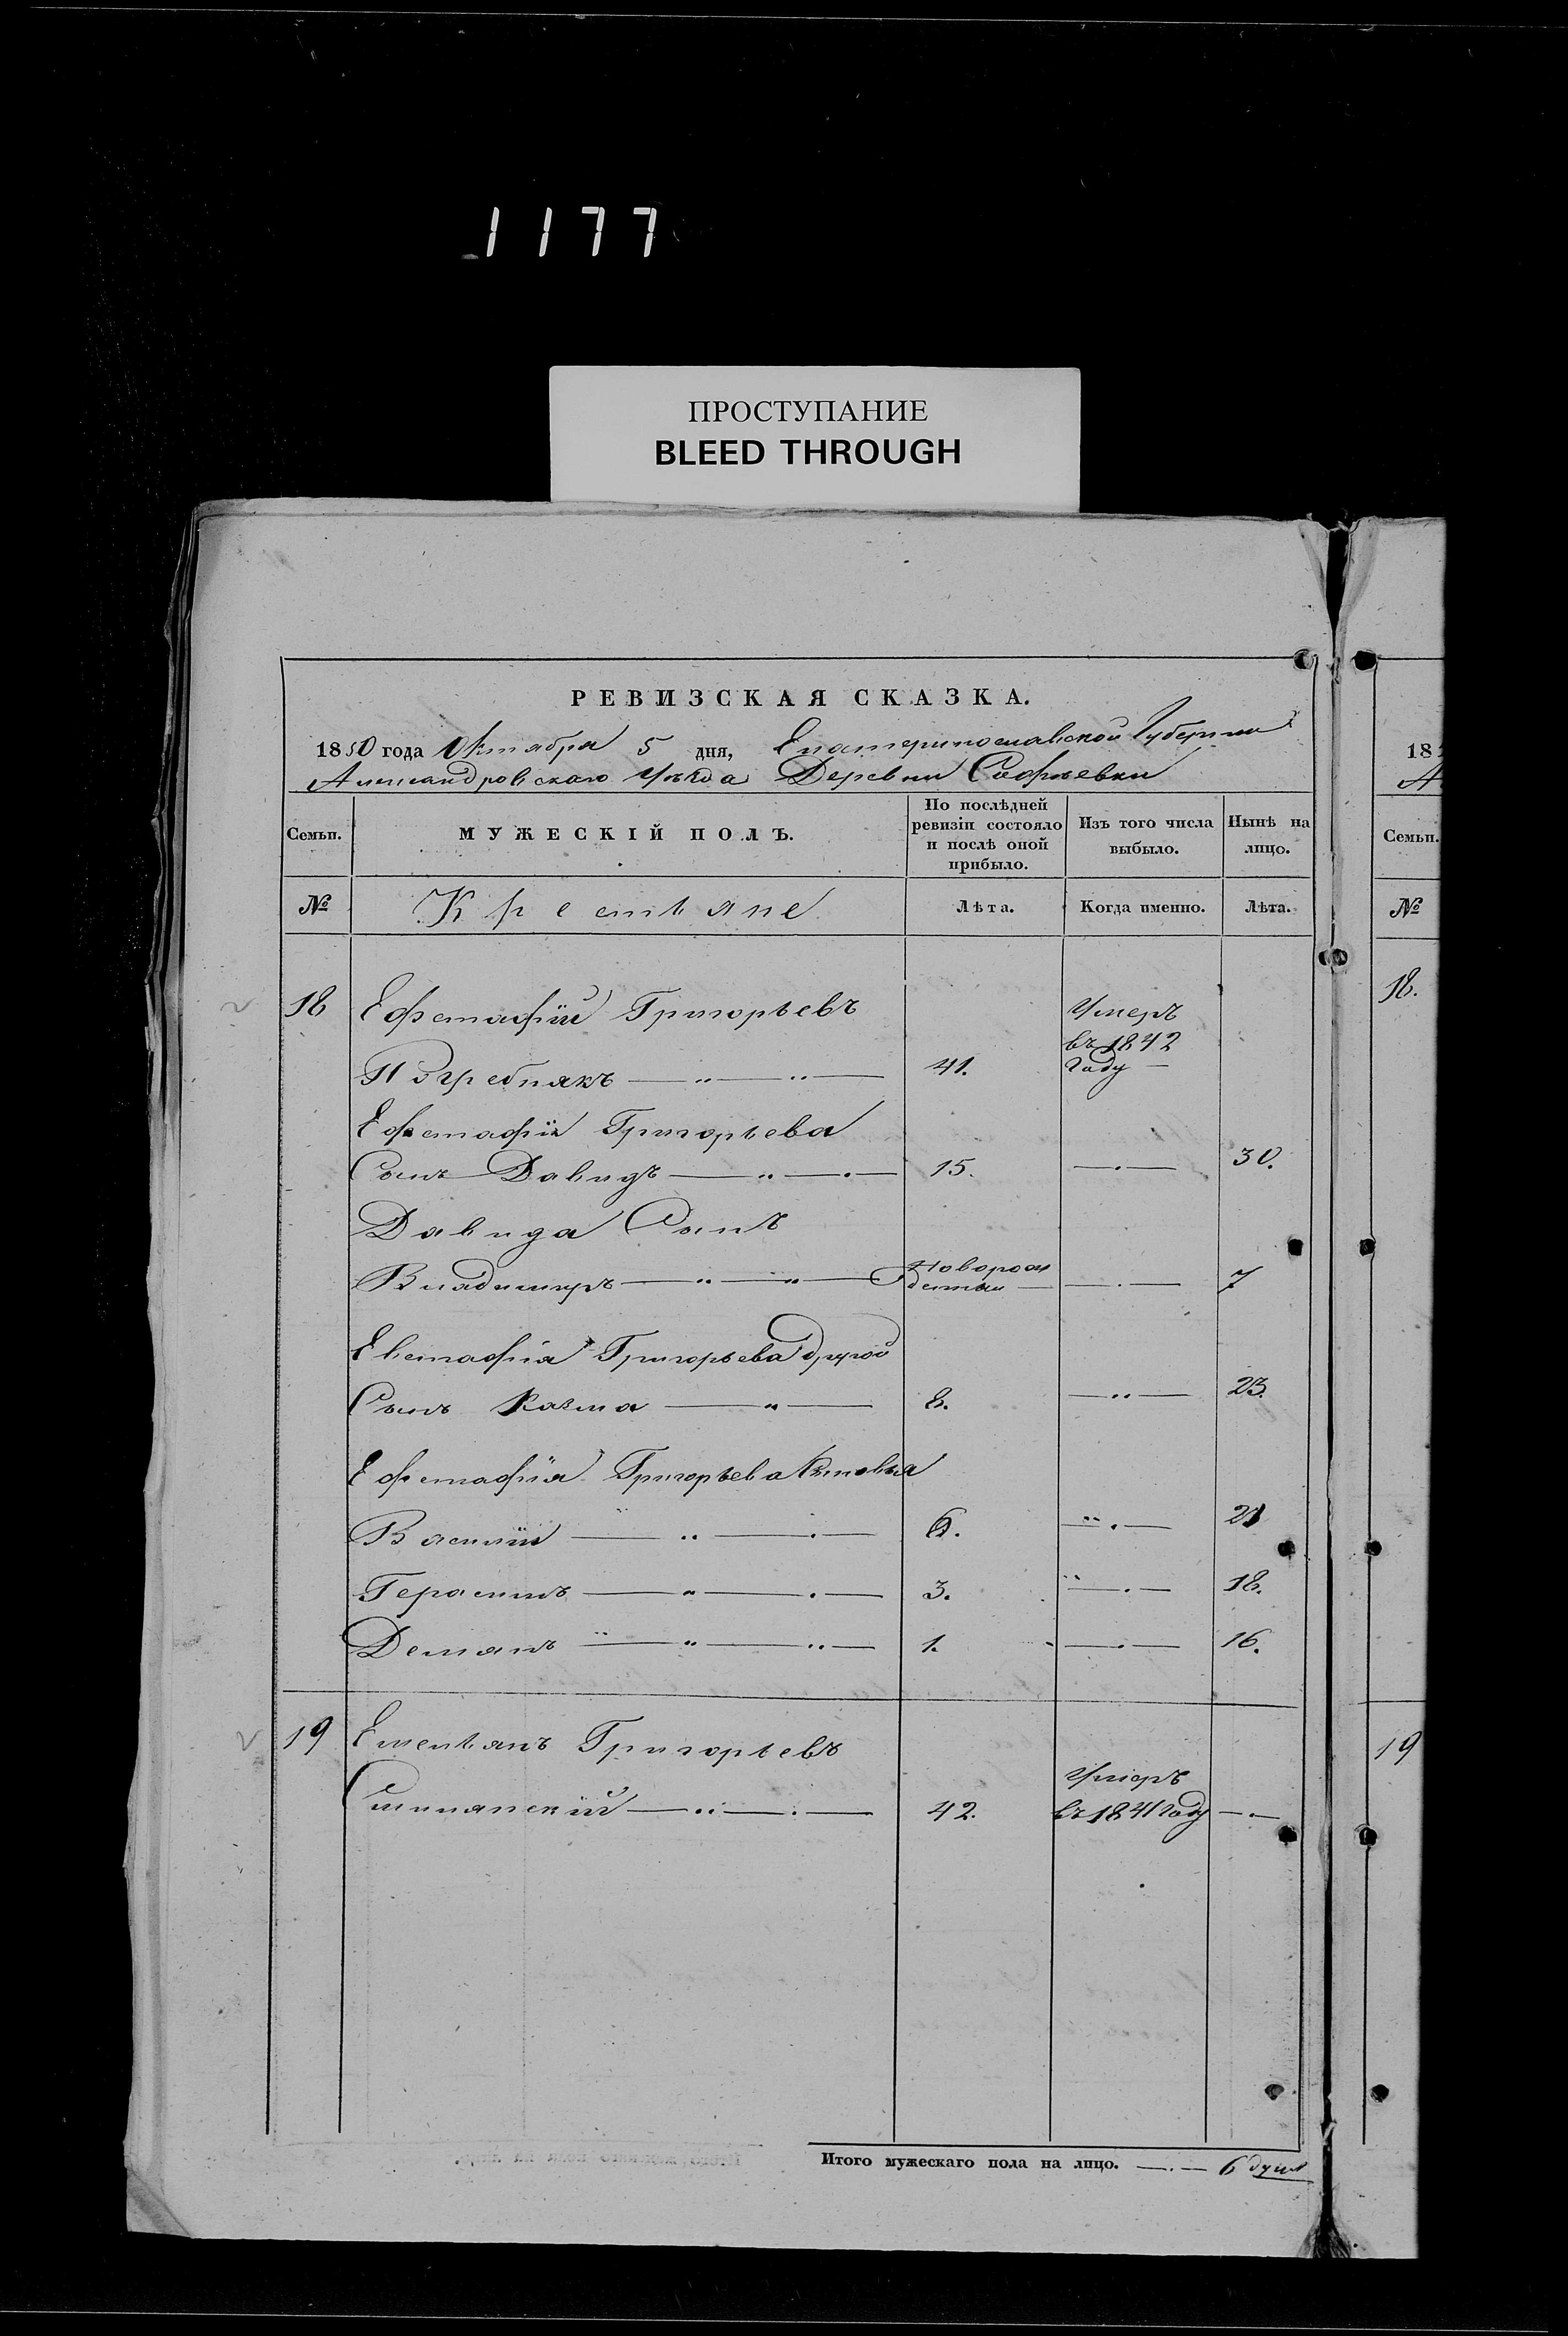 1177
ПРОСТУПАНИЕ
BLEED THROUGH
РЕВИЗСКАЯ СКАЗКА.
1850 года Октября 5 дня, Екатеринославской Губернии
Александровскаго Уѣзда Деревни Софіевки
Семьи. МУЖЕСКІЙ ПОЛЪ. По послѣдней ревизіи состояло и послѣ оной прибыло. Изъ того числа выбыло. Нынѣ на лицо.
№ Крестьяне Лѣта. Когда именно. Лѣта.
18 Ефстафій Григорьевъ Умеръ
въ 1842
Погребнякъ 41. Году
Ефстафія Григорьева
Сынъ Давидъ 15. 30.
Давида Сынъ
Владимиръ Новорож
денный 7
Евстафія Григорьева другой
Сынъ Казма 8. 23.
Ефстафія Григорьева Сыновья
Василій 6. 21
Герасимъ 3. 18.
Демянъ 1. 16.
19 Емельянъ Григорьевъ
Умеръ
42. въ 1841 Году
Итого мужескаго пола на лицо. 6 душъ
18
А
Семьи.
№
18.
19